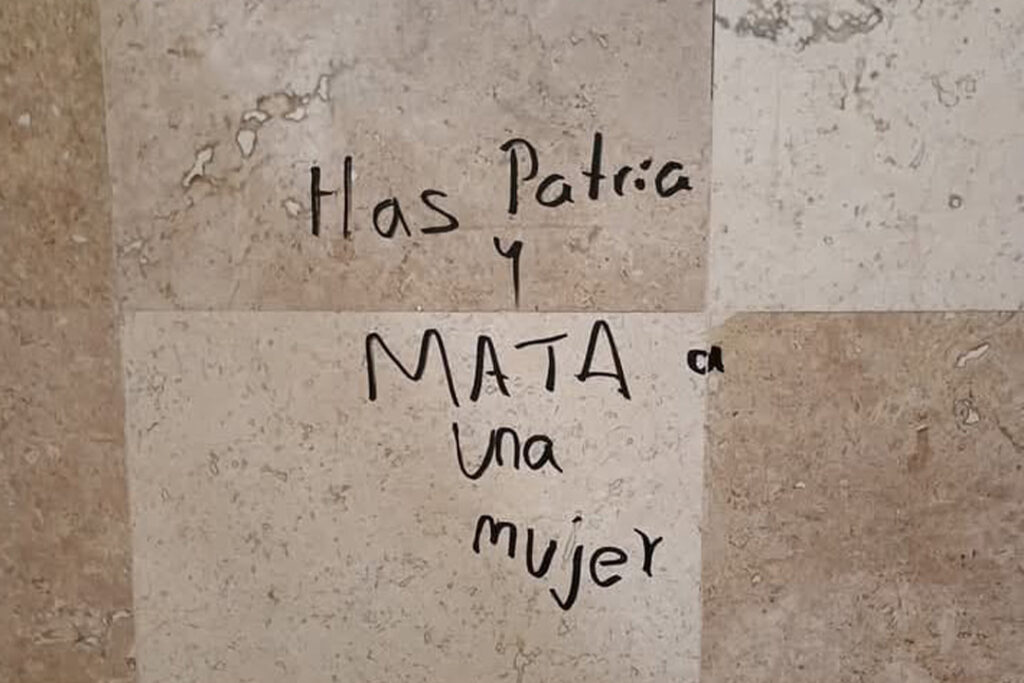 Has Patria
y
MATA a
una
mujer